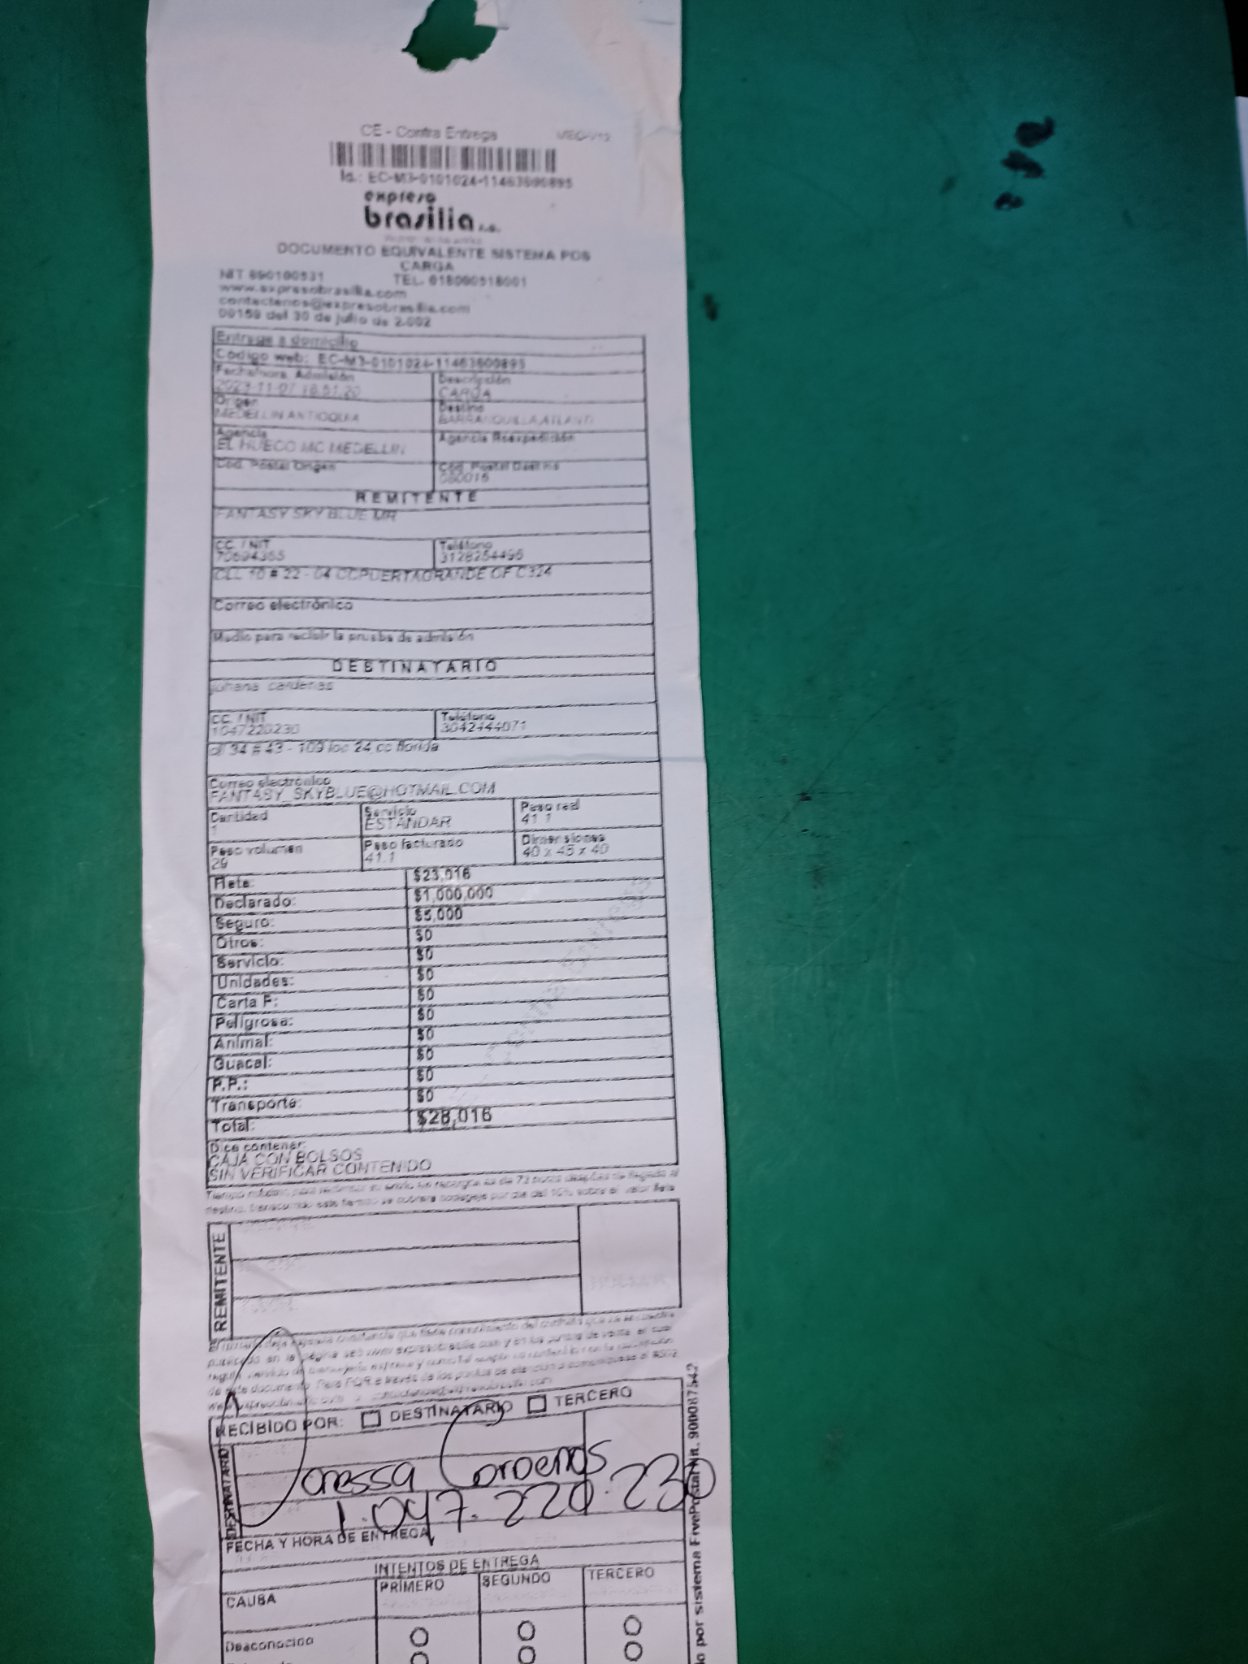 CE - Contra Entrega
Id.: EC-M3-0101024-11463600895
expreso
brasilia s.a.
DOCUMENTO EQUIVALENTE SISTEMA POS
CARGA
NIT 890100531 TEL. 018000518001
www.expresobrasilia.com
contactenos@expresobrasilia.com
00159 del 30 de julio de 2.002
Entrega a domicilio
Codigo web: EC-M3-0101024-11463600895
Fecha/hora Admisión Descripción
2023-11-07 18:51:20 CARGA
Origen Destino
MEDELLIN ANTIOQUIA BARRANQUILLA ATLANTI
Agencia Agencia Reexpedición
EL HUECO MC MEDELLIN
Cod. Postal Origen Cod. Postal Destino
080016
REMITENTE
FANTASY SKY BLUE MR
CC / NIT Teléfono
70694355 3128254495
CLL 10 # 22 - 04 CCPUERTAGRANDE OF C324
Correo electrónico
Medio para recibir la prueba de admisión
DESTINATARIO
juliana cardenas
CC / NIT Teléfono
1047220230 3042444071
cl 34 # 43 - 109 loc 24 cc florida
Correo electrónico
FANTASY_SKYBLUE@HOTMAIL.COM
Cantidad Servicio Peso real
1 ESTANDAR 41.1
Peso volumen Peso facturado Dimensiones
29 41.1 40 x 45 x 40
Flete: $23,016
Declarado: $1,000,000
Seguro: $5,000
Otros: $0
Servicio: $0
Unidades: $0
Carta P: $0
Peligrosa: $0
Animal: $0
Guacal: $0
P.P.: $0
Transporte: $0
Total: $28,016
Dice contener:
CAJA CON BOLSOS
SIN VERIFICAR CONTENIDO
REMITENTE
RECIBIDO POR: DESTINATARIO TERCERO
DESTINATARIO
Vanessa Cardenas
1.047.220.230
FECHA Y HORA DE ENTREGA
INTENTOS DE ENTREGA
CAUSA PRIMERO SEGUNDO TERCERO
Desconocido
o por sistema FivePostal Nit. 900087542